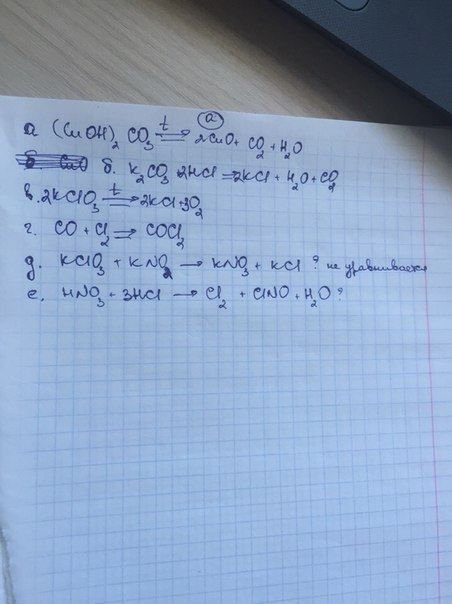 а
а (CuOH)₂ CO₃ t⇒ 2CuO + CO₂ + H₂O
б. K₂CO₃ 2HCl ⇒ 2KCl + H₂O + CO₂
в. 2KClO₃ t⇒ 2KCl + 3O₂
г. CO + Cl₂ ⇒ COCl₂
д. KClO₃ + KNO₂ → KNO₃ + KCl ? не уравнивается
е. HNO₃ + 3HCl → Cl₂ + ClNO + H₂O ?